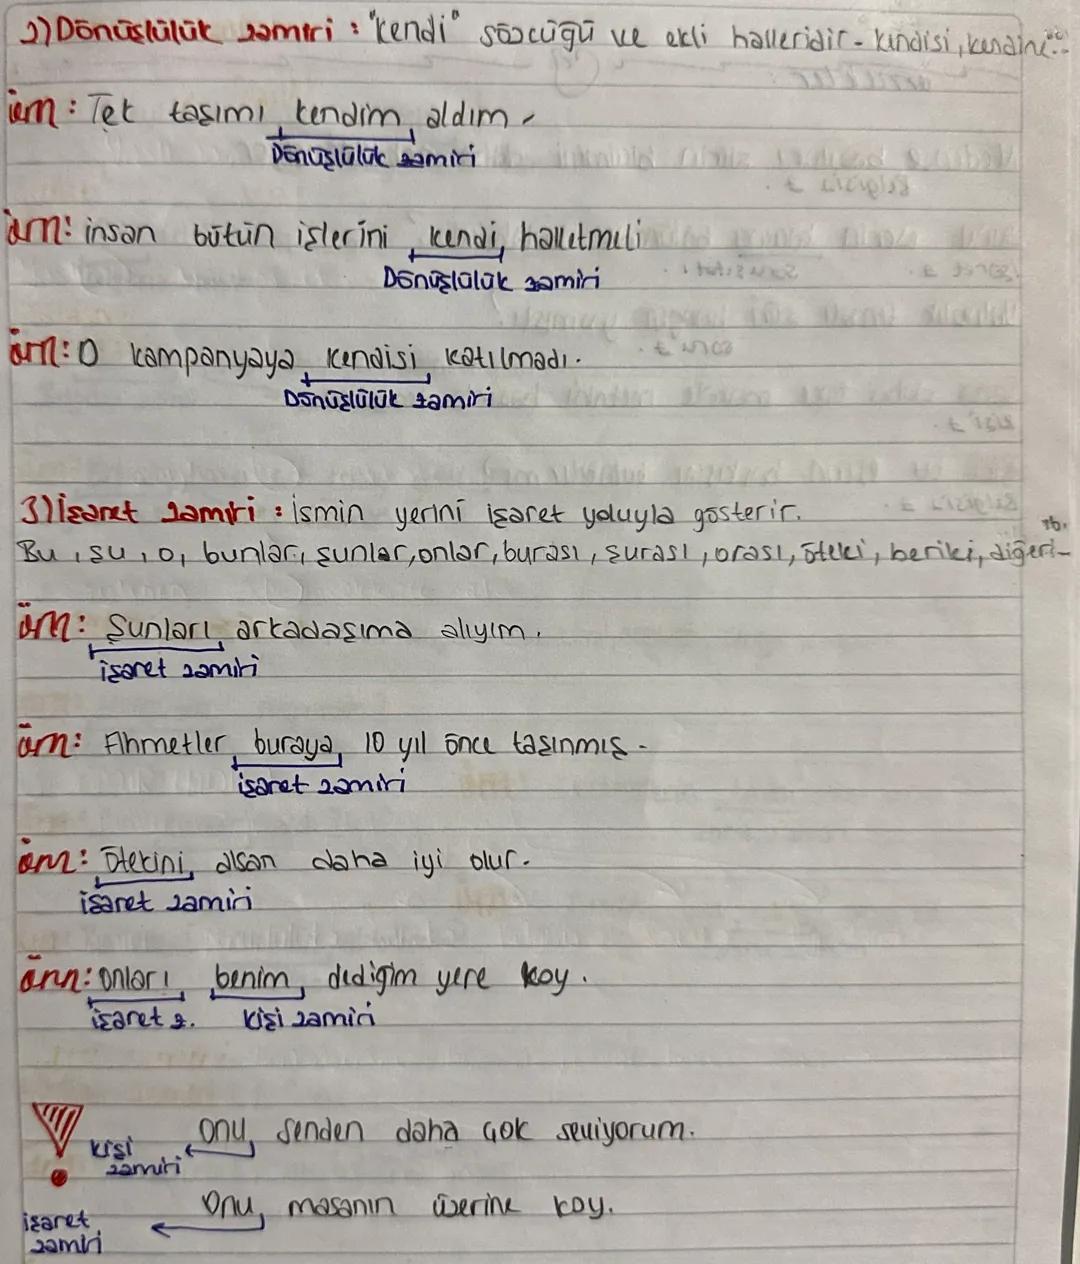 2) Dönüşlülük zamiri : "kendi" sözcüğü ve ekli halleridir - kendisi, kendine..
örn : Tek taşımı kendim aldım.
Dönüşlülük zamiri
örn: insan bütün işlerini kendi halletmeli
Dönüşlülük zamiri
örn: O kampanyaya kendisi katılmadı.
Dönüşlülük zamiri
3) işaret zamiri : ismin yerini işaret yoluyla gösterir.
Bu, şu, o, bunlar, şunlar, onlar, burası, şurası, orası, öteki, beriki, diğeri- vb.
örn: Şunları arkadaşıma alıyım.
işaret zamiri
örn: Ahmetler buraya 10 yıl önce taşınmış.
işaret zamiri
örn: Ötekini alsan daha iyi olur.
işaret zamiri
örn: Onları benim dediğim yere koy.
işaret z. kişi zamiri
Onu senden daha çok seviyorum.
kişi zamiri
Onu masanın üzerine koy.
işaret zamiri